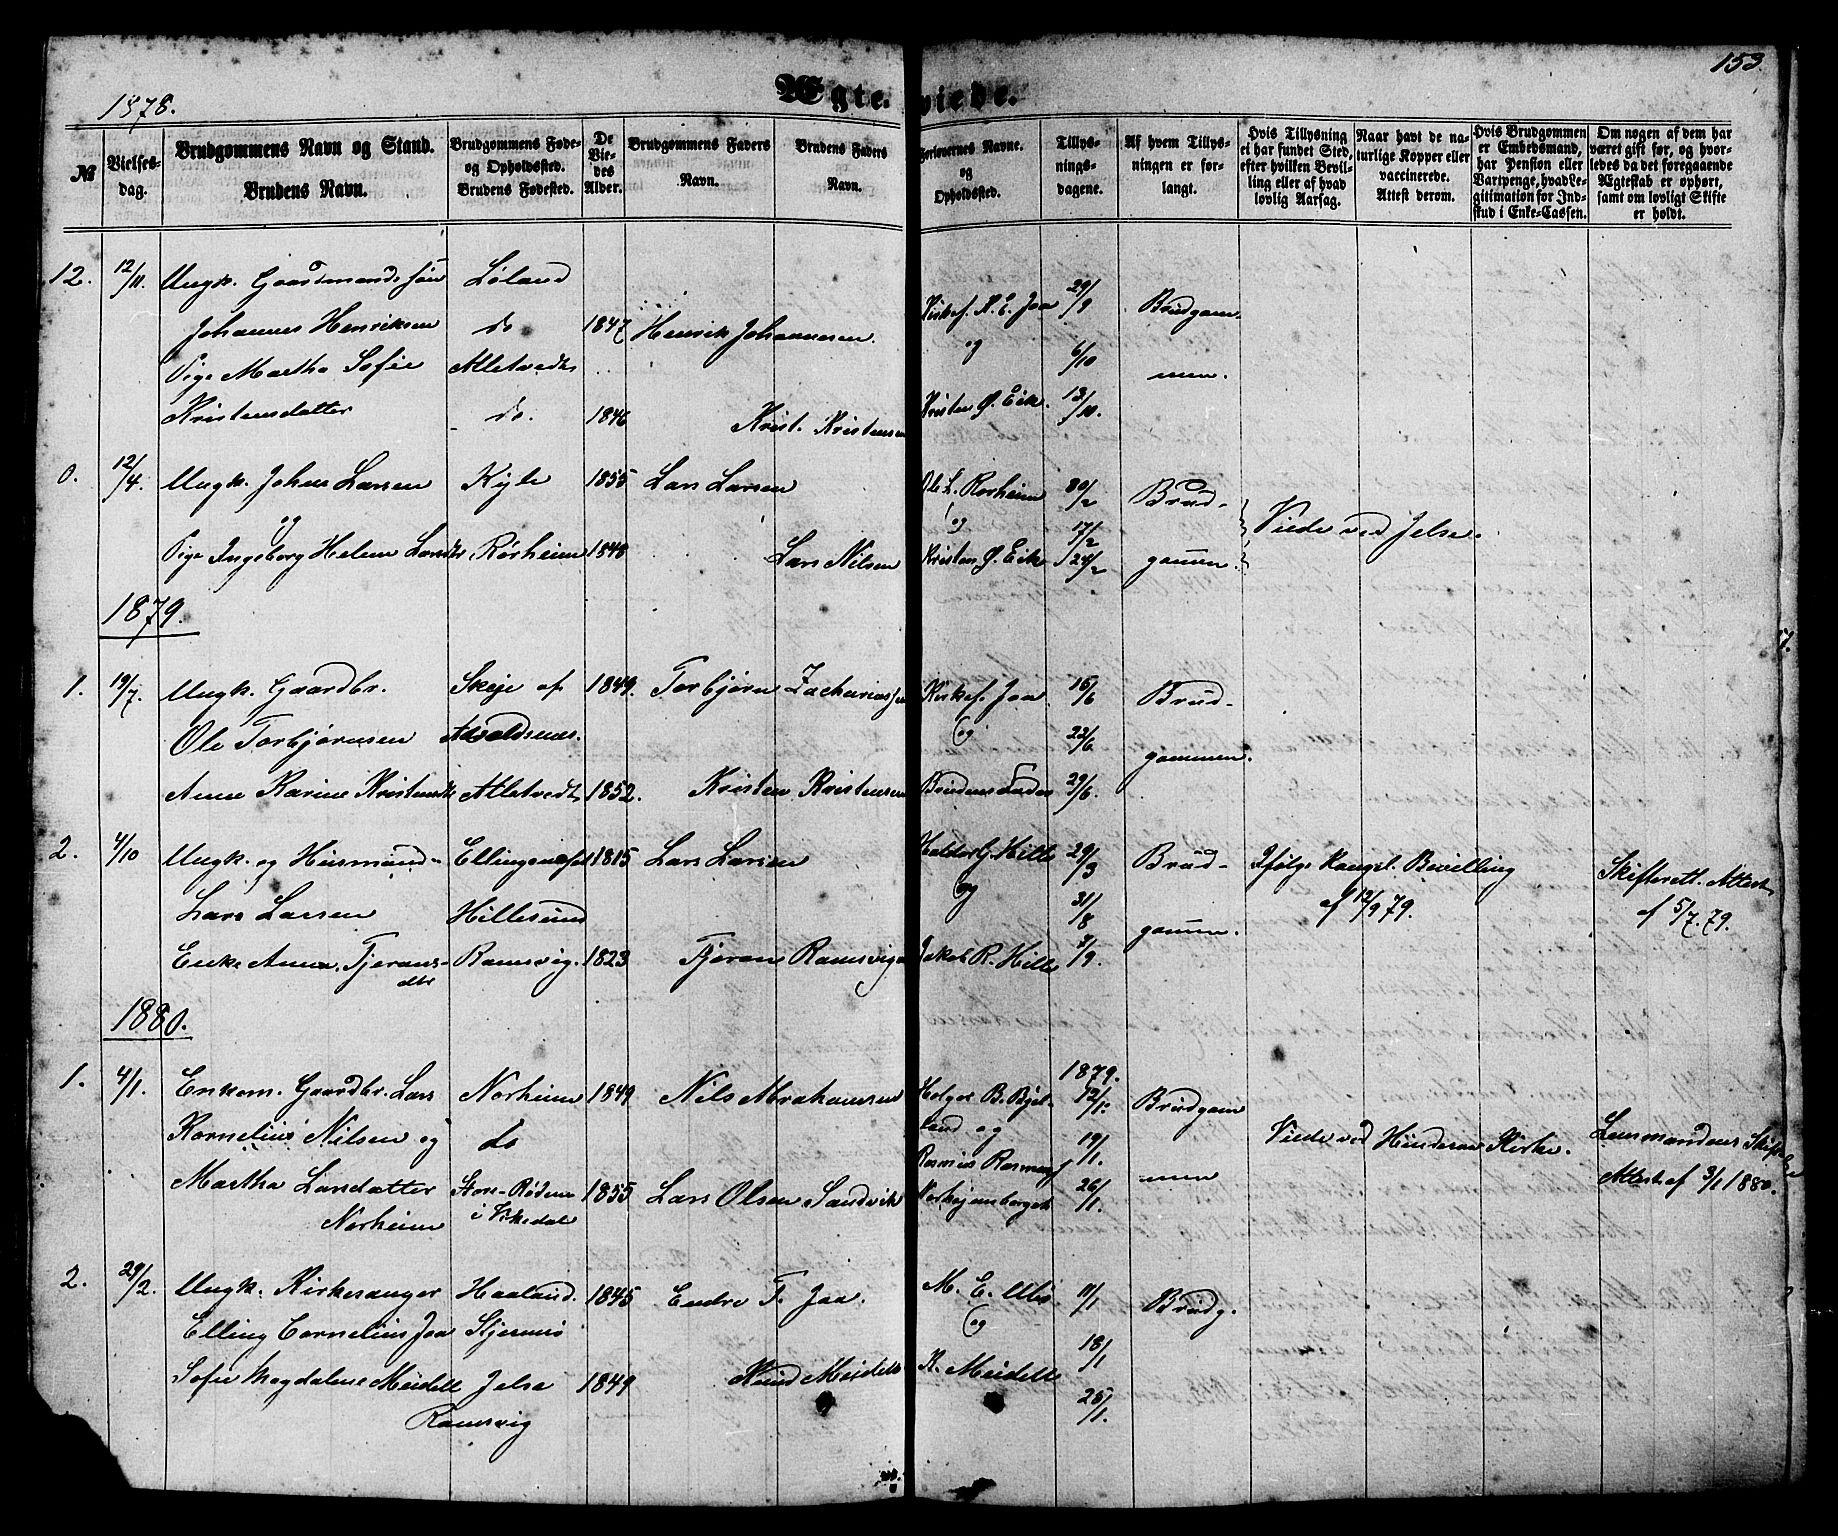 153.
1878.
Ægte-viede.
№
Vielses-
dag.
Brudgommens Navn og Stand.
Brudens Navn.
Brudgommens Føde-
og Opholdssted.
Brudens Fødested.
De
Vie-
des
Alder.
Brudgommens Faders
Navn.
Brudens Faders
Navn.
Forlovernes Navne.
og
Opholdssted.
Tillys-
nings-
dagene.
Af hvem Tillys-
ningen er for-
langt.
Hvis Tillysning
ei har fundet Sted,
efter hvilken Bevil-
ling eller af hvad
lovlig Aarsag.
Naar havt de na-
turlige Kopper eller
vaccinerede.
Attest derom.
Hvis Brudgommen
er Embedsmand,
har Pension eller
Vartpenge, hvad Le-
gitimation for Ind-
skud i Enke-Cassen.
Om nogen af dem har
været gift før, og hvor-
ledes da det foregaaende
Ægteskab er ophørt,
samt om lovligt Skifte
er holdt.
12. 12/11. Ungk. Gaardmandssøn Løland 29/9
Johannes Henriksen do 1847 Henrik Johannesen. Kirkes. A. E. Jaa Brudgom-
Pige Martha Sofie Alletvedt og 6/10 men.
Kristensdatter do. 1846 Krist. Kristensen Kristen Ø. Eik. 13/10.
0. 12/4. Ungk. Johan Larsen Kyle 1855 Lars Larsen Ole L. Rorheim Brud-
og og 17/2 Viede ved Jelse.
Pige Ingeborg Helene Larsdt Rørheim 1848 Lars Nilsen Kristen Ø. Eik 24/2 gommen.
1879.
1. 19/7. Ungk. Gaardbr. Skeje af 1849. Torbjørn Zachariassen Kirkes. Jaa 15/6 Brud-
Ole Torbjørnsen Avaldsnes. og 22/6
Anne Karine Kristensdt Alletvedt 1852. Kristen Kristensen Brudens Fader 29/6. gommen.
2. 4/10 Ungk. og Husmand- 1815 Lars Larsen Haldor G. Hille Brud- Ifølge Kongel. Bevilling Skifterett. Attest
Lars Larsen Hillesund og 31/8 gommen. af 12/9 79. af 5/7. 79.
Enke Anna Tjerans- Ramsvig. 1823 Tjeran Ramsvig Jakob R. Hille 7/9.
dtr
1880.
1. 4/1. Enkem. Gaardbr. Lars Norheim 1849 Nils Abrahamsen Holger B. Bjel- 1879. Brudgom
Kornelius Nilsen og do land og 19/1. Viede ved Hinderaa Kirke. Lensmandens Skifte
Martha Larsdatter 1855 Lars Olsen Sandvik Rasmus 26/1. men Attest af 3/1 1880.
Norheim i Vikedal
2. 29/2. Ungk. Kirkesanger Haaland. 1845 Endre T. Jaa. M. E. 11/1 Brudg.
Elling Cornelius Jaa Stjernerø og 18/1
Sofie Magdalene Meidell Jelse 1849 Knud Meidell K. Meidell 25/1.
Ramsvig